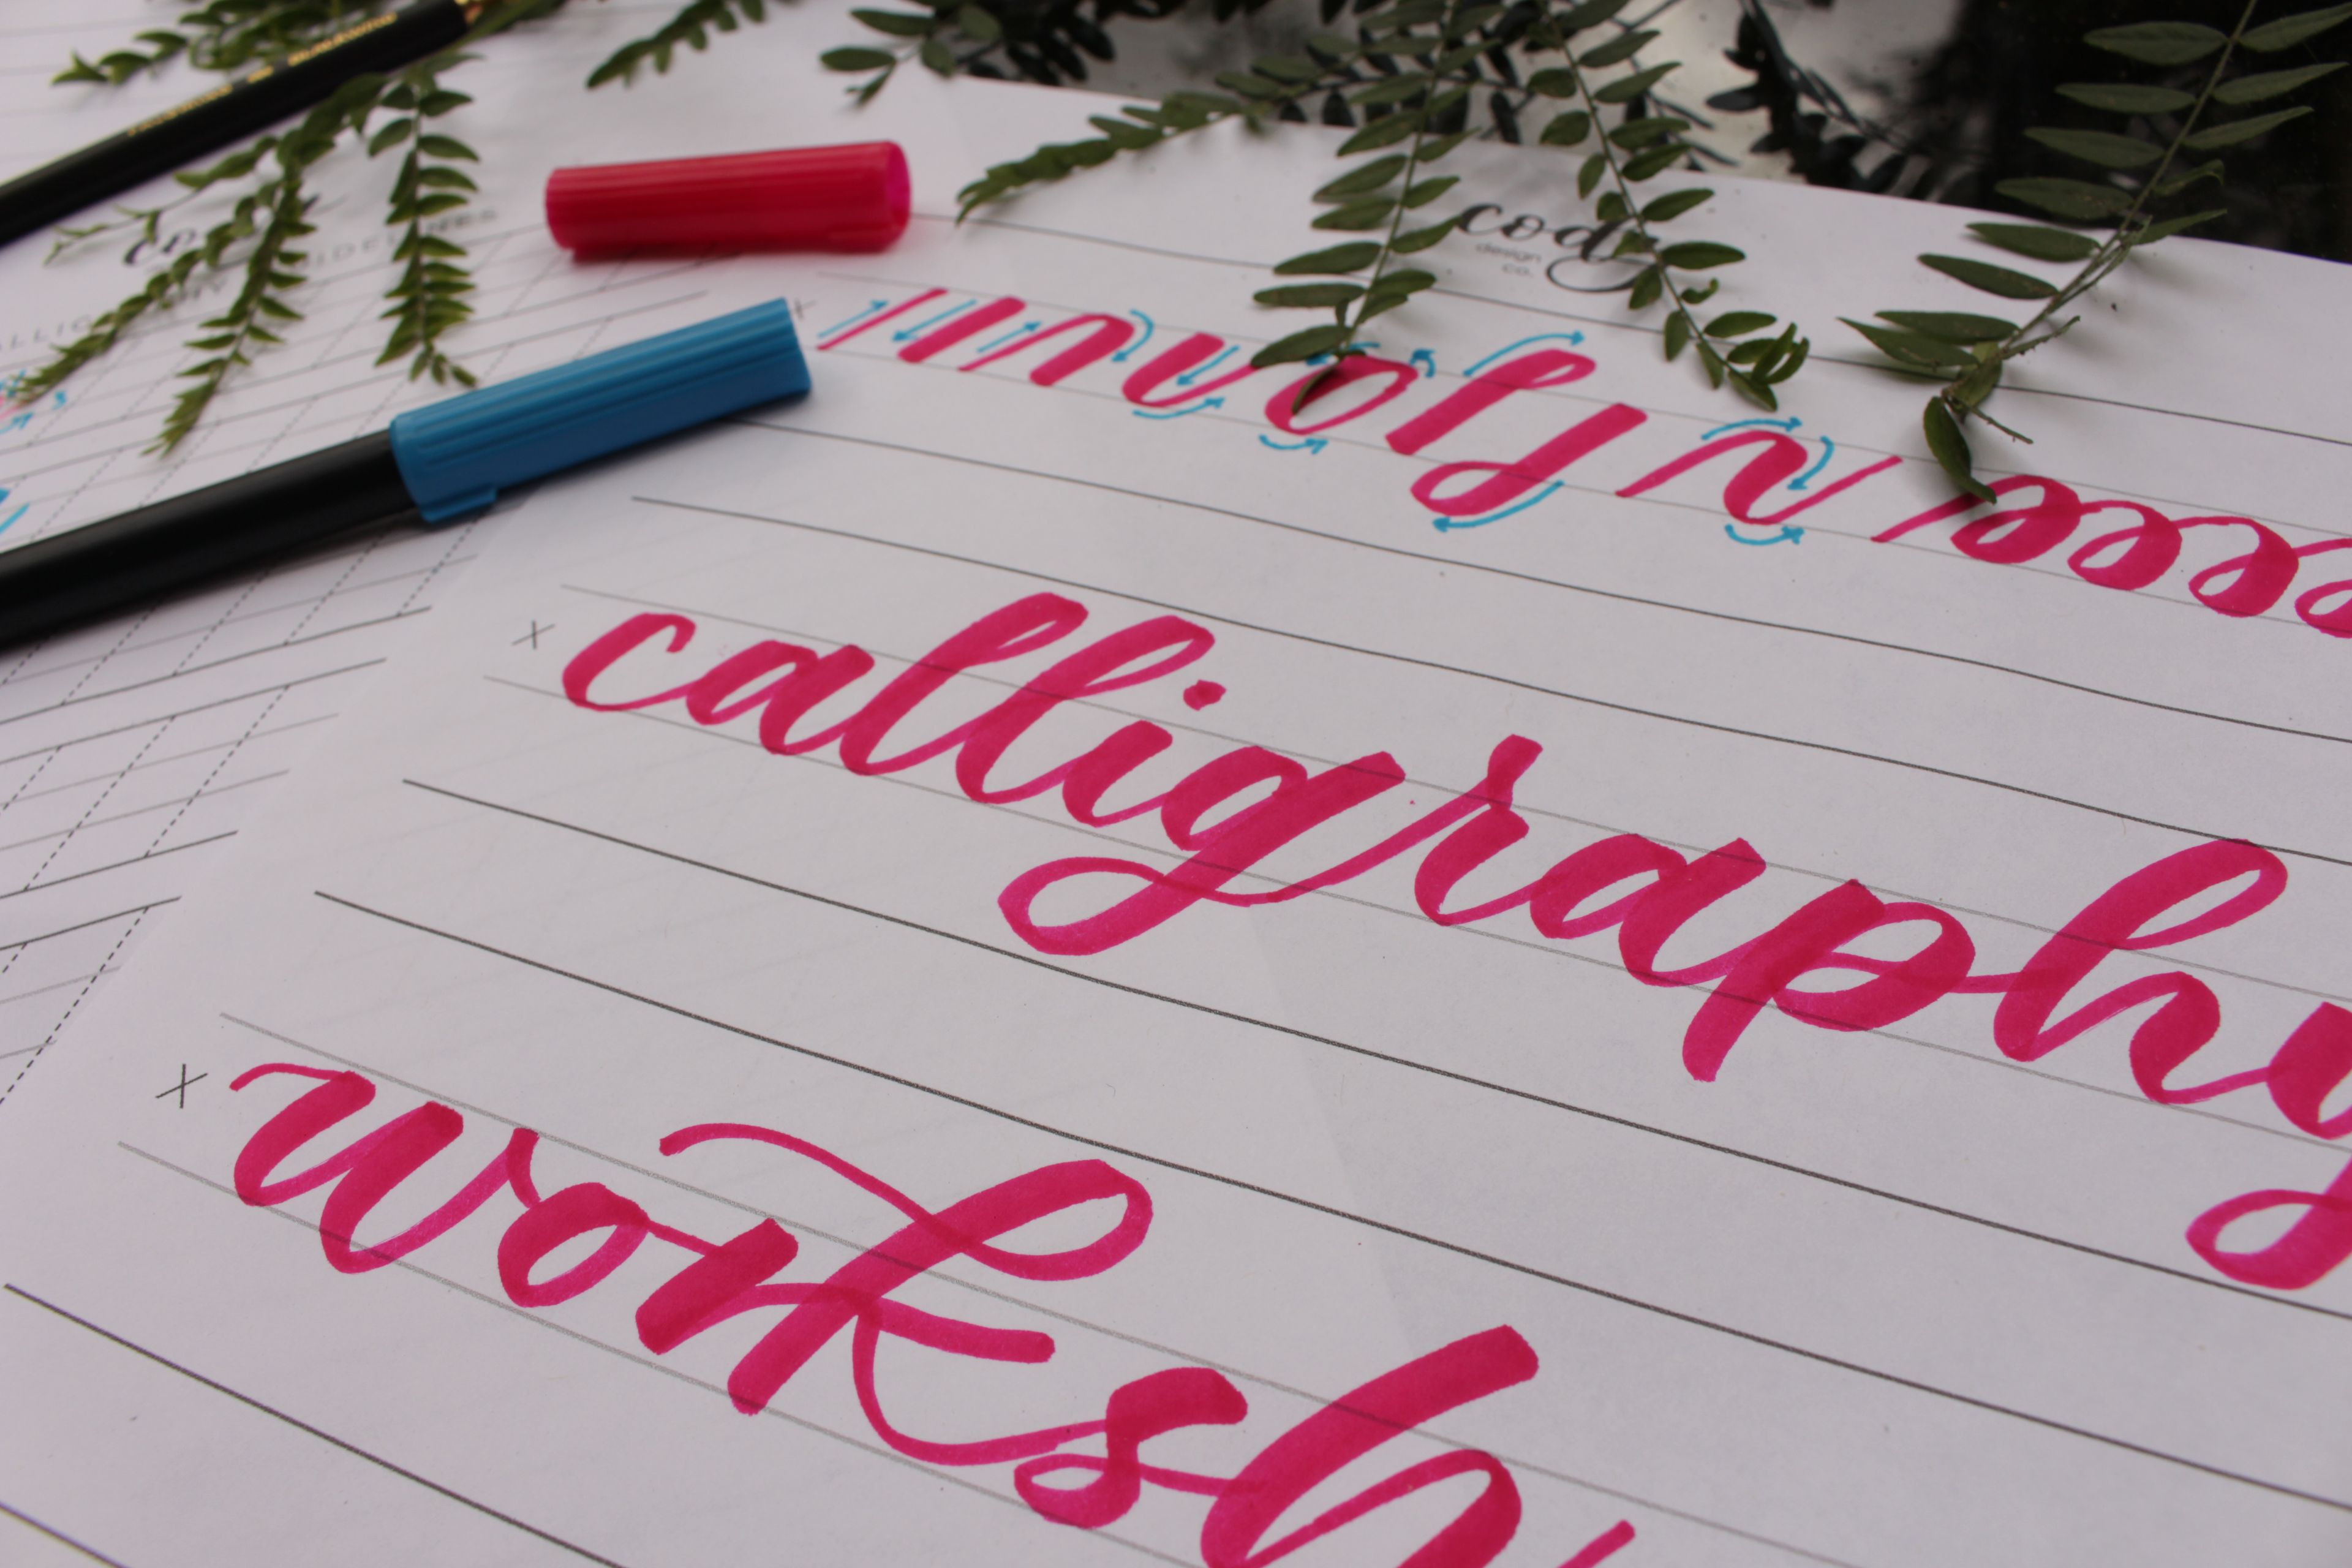 cody
design
co.
eee
x calligraphy
x worksh